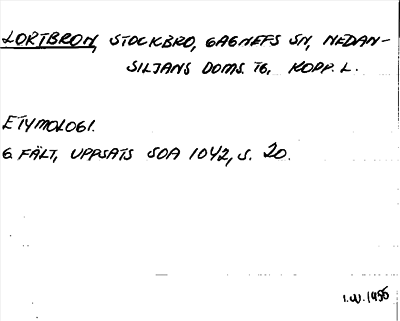 LORTBRON, STOCKBRO, GAGNEFS SN, NEDAN-
SILJANS DOMS. TG, KOPP. L.
ETYMOLOGI.
G. FÄLT, UPPSATS SOA 1042, S. 20.
I.W. 1955